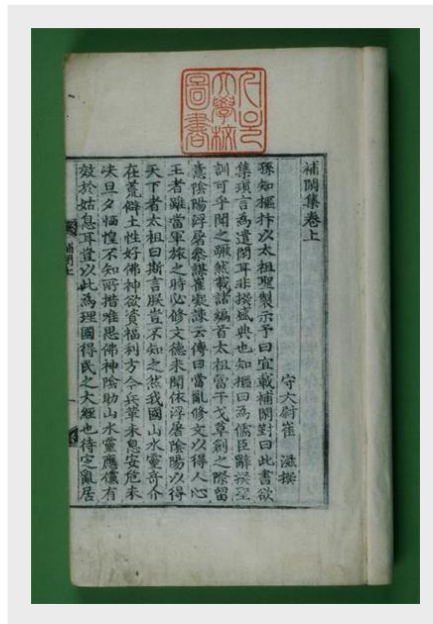 大學校
圖書
補閑集卷上
守大尉崔 滋撰
孫知樞抃以太祖聖製示予曰宜載補閑對曰此書欲
集瑣言為遣閑耳非撰盛典也知樞曰為儒臣辭撰聖
訓可乎聞之蹶然載諸編首太祖當干戈草創之際留
意陰陽浮屠參謀崔凝諫云傳曰當亂修文以得人心
王者雖當軍旅之時必修文德未聞依浮屠陰陽以得
天下者太祖曰斯言朕豈不知之然我國山水靈奇介
在荒僻土性好佛神欲資福利方今兵革未息安危未
決旦夕恓惶不知所措唯思佛神陰助山水靈應儻有
效於姑息耳豈以此為理國得民之大經也待定亂居
補閑上